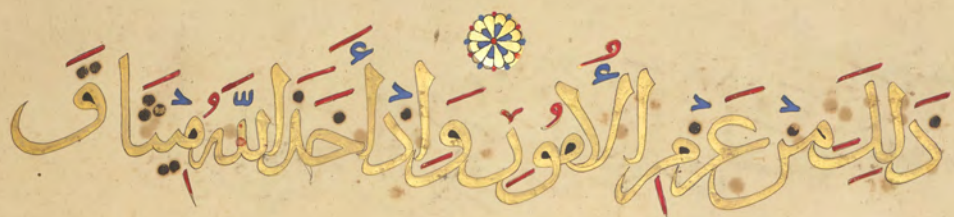 ذَٰلِكَ مِنْ عَزْمِ الْأُمُورِ وَإِذْ أَخَذَ اللَّهُ مِيثَاقَ